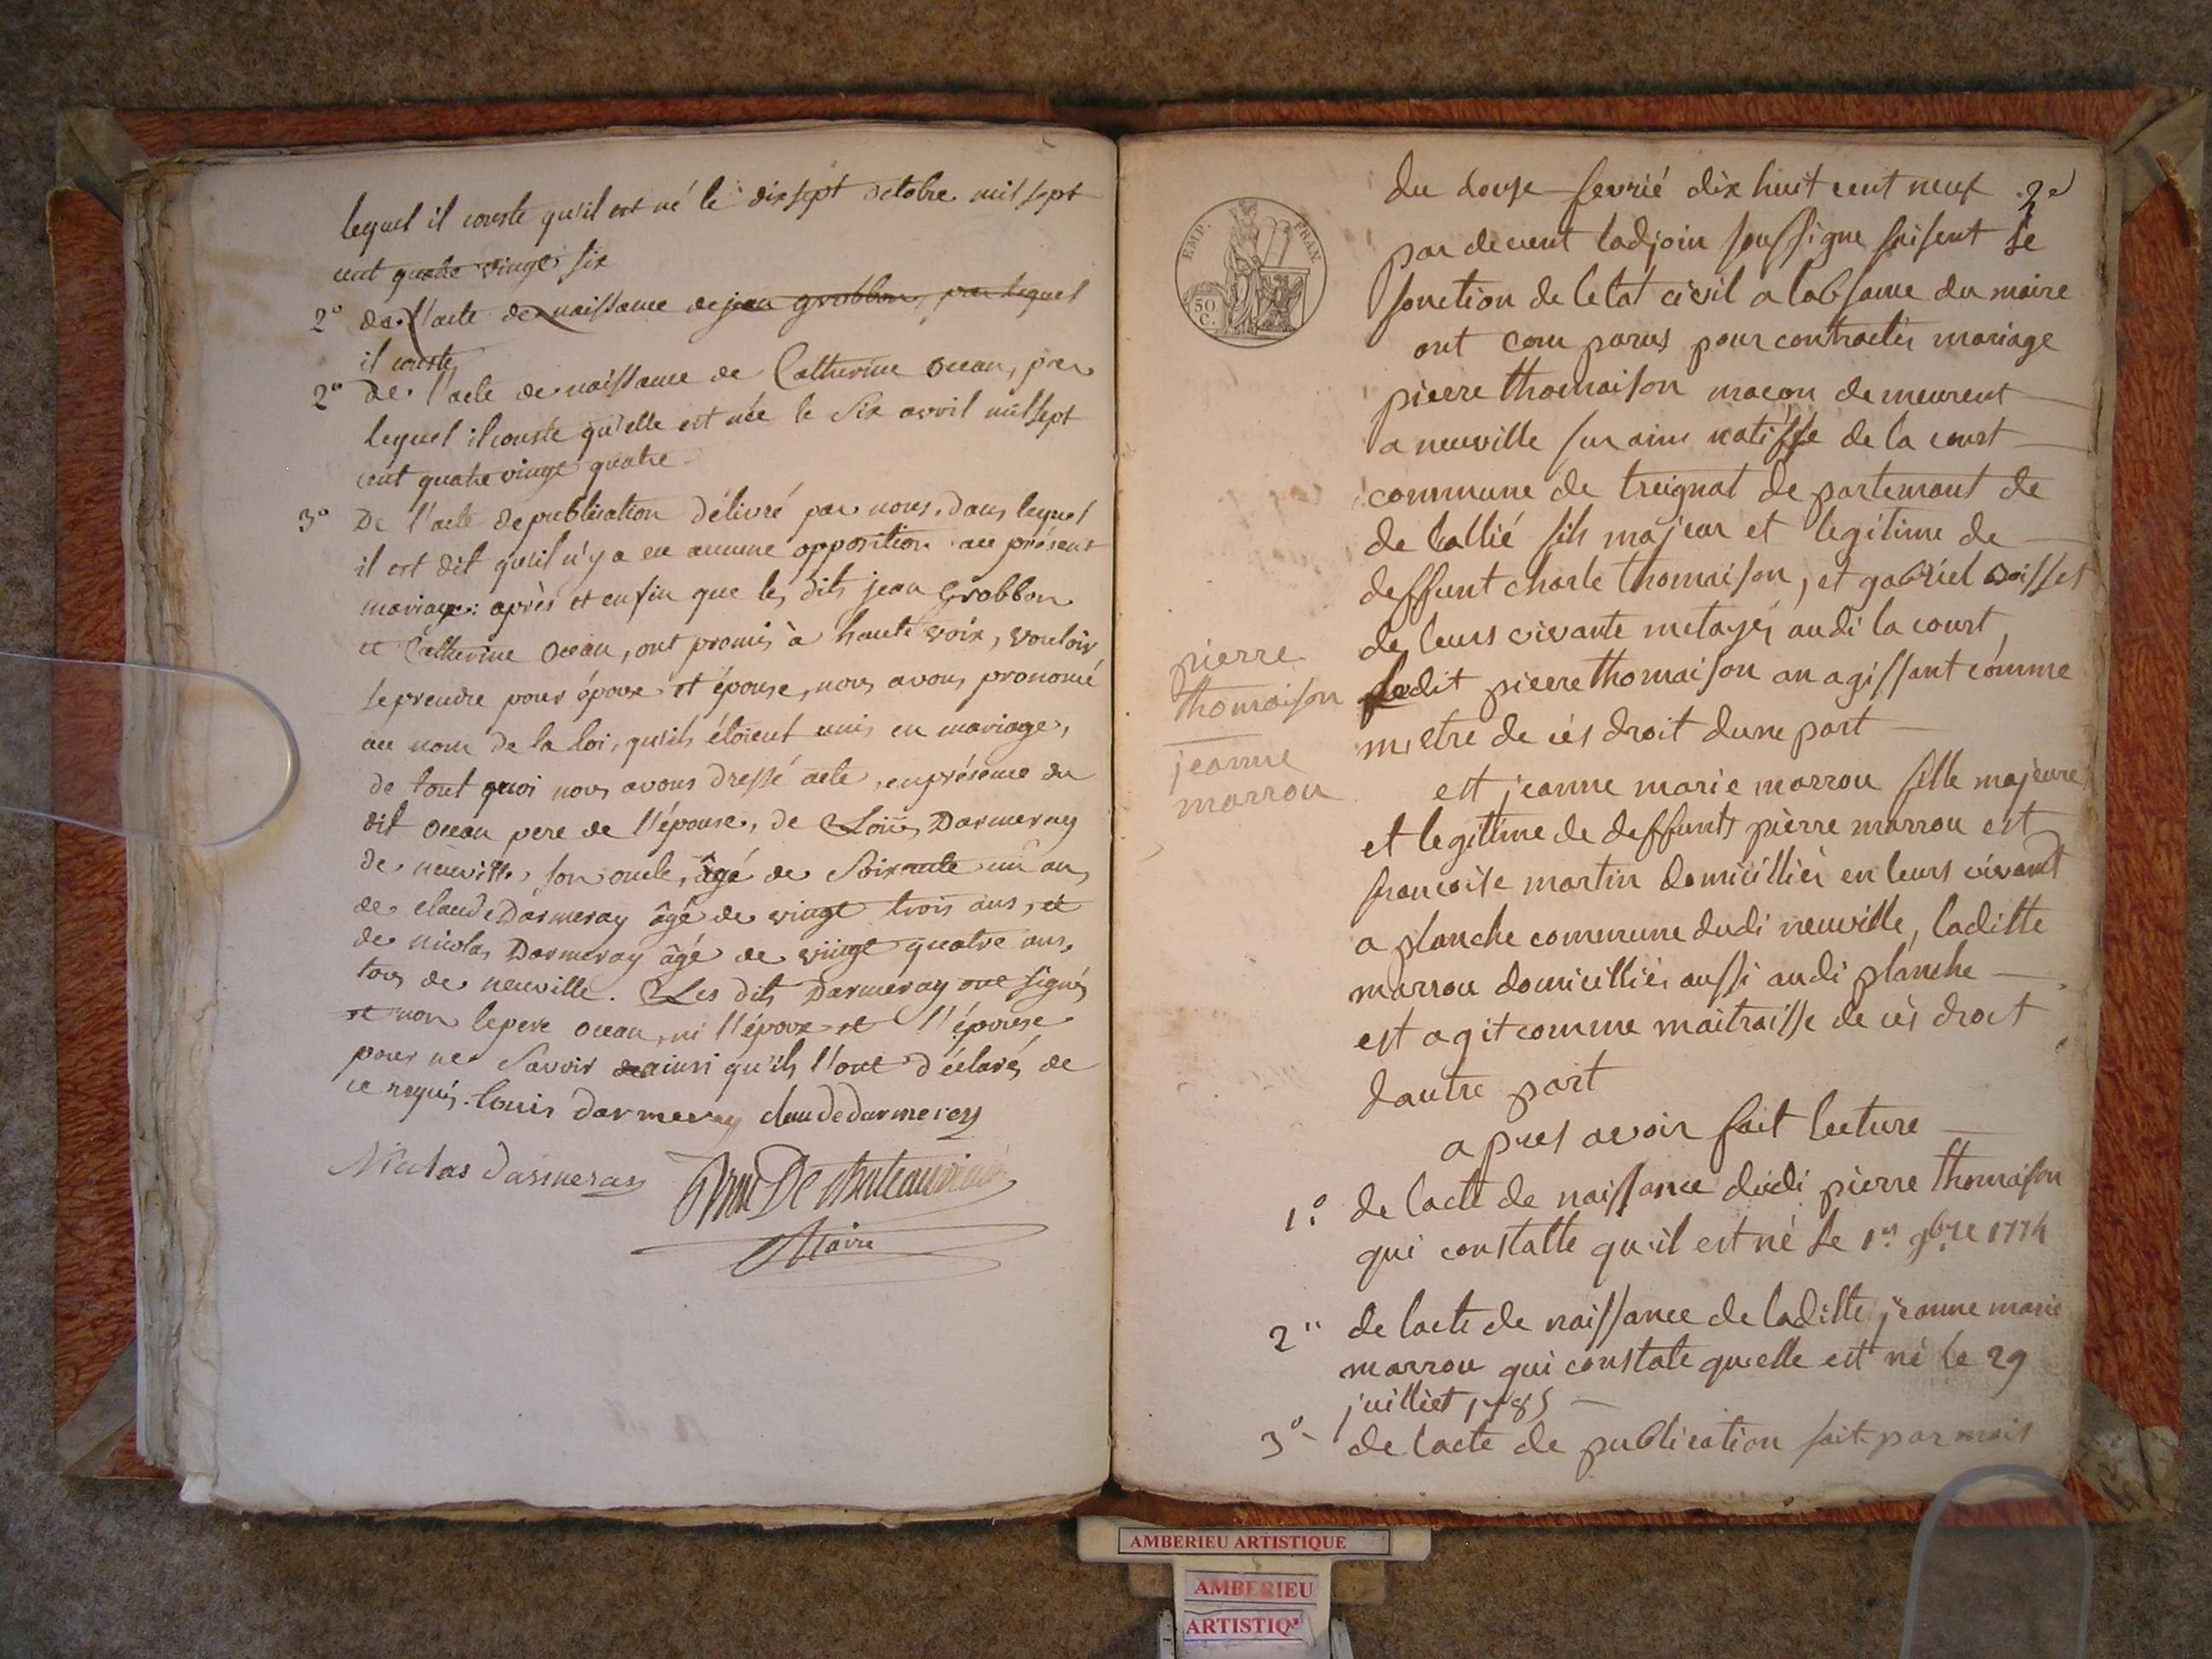 lequel il conste qu'il est né le dix sept octobre mil sept
cent quatre vingt six
2° de l'acte de naissance de jean grobbon, par lequel
il conste
2° De l'acte de naissance de Catherine Ocean, par
lequel il conste qu'elle est née le six avril mil sept
cent quatre vingt quatre
3° De l'acte de publication délivré par nous, dans lequel
il est dit qu'il n'y a eu aucune opposition au présent
mariage: après et enfin que les dits jean Grobbon
et Catherine Ocean, ont promis à haute voix, vouloir
se prendre pour époux et épouse, nous avons prononcé
au nom de la loi, qu'ils étoient unis en mariage,
de tout quoi nous avons dressé acte, en présence du
dit Ocean pere de l'épouse, de Loüis Darmeray
de neuville, son oncle, âgé de Soixante un an,
de claude Darmeray âgé de vingt trois ans, et
de nicolas Darmeray âgé de vingt quatre ans,
tous de neuville. Les dits Darmeray ont signés
et non le pere Ocean, ni l'époux et l'épouse
pour ne Savoir ainsi qu'ils l'ont déclarés de
ce requis. louis darmeray claudedarmerey
Nicolas darmeray
Maire
du douse fevrié dix huit cent neuf 2e
par decent ladjoin soussigne faisent le
fonction de letat civil a labsance du maire
ont comparus pour contracter mariage
pierre thomaison maçon demeurent
a neuville sur ains natisse de la court
commune de treignat departemant de
de lallié fils majeur et legitime de
deffunt charle thomaison, et gabriel Boisset
de leurs vivante metayés audi la court,
ledit pierre thomaison an agissant comme
mistre de cés droit dune part
pierre
thomaison
jeanne
marrou
est jeanne marie marrou fille majeure
et legitime de deffunts pierre marrou est
francoise martin domicilliér en leurs vivant
a planche commune dudi neuville, laditte
marrou domicilliér aussi audi planche
est agit comme maitraisse de cés droit
dautre part
apres avoir fait lecture
1.° de lacte de naissance dudi pierre thomaison
qui constatte qu'il est né le 1er 9bre 1774
2° de lacte de naissance de laditte jeanne marie
marrou qui constate quelle est né le 29
juilliet 1785
3° de lacte de publication fait par mois
EMP. FRAN.
50
C.
AMBERIEU ARTISTIQUE
AMBERIEU
ARTISTIQ